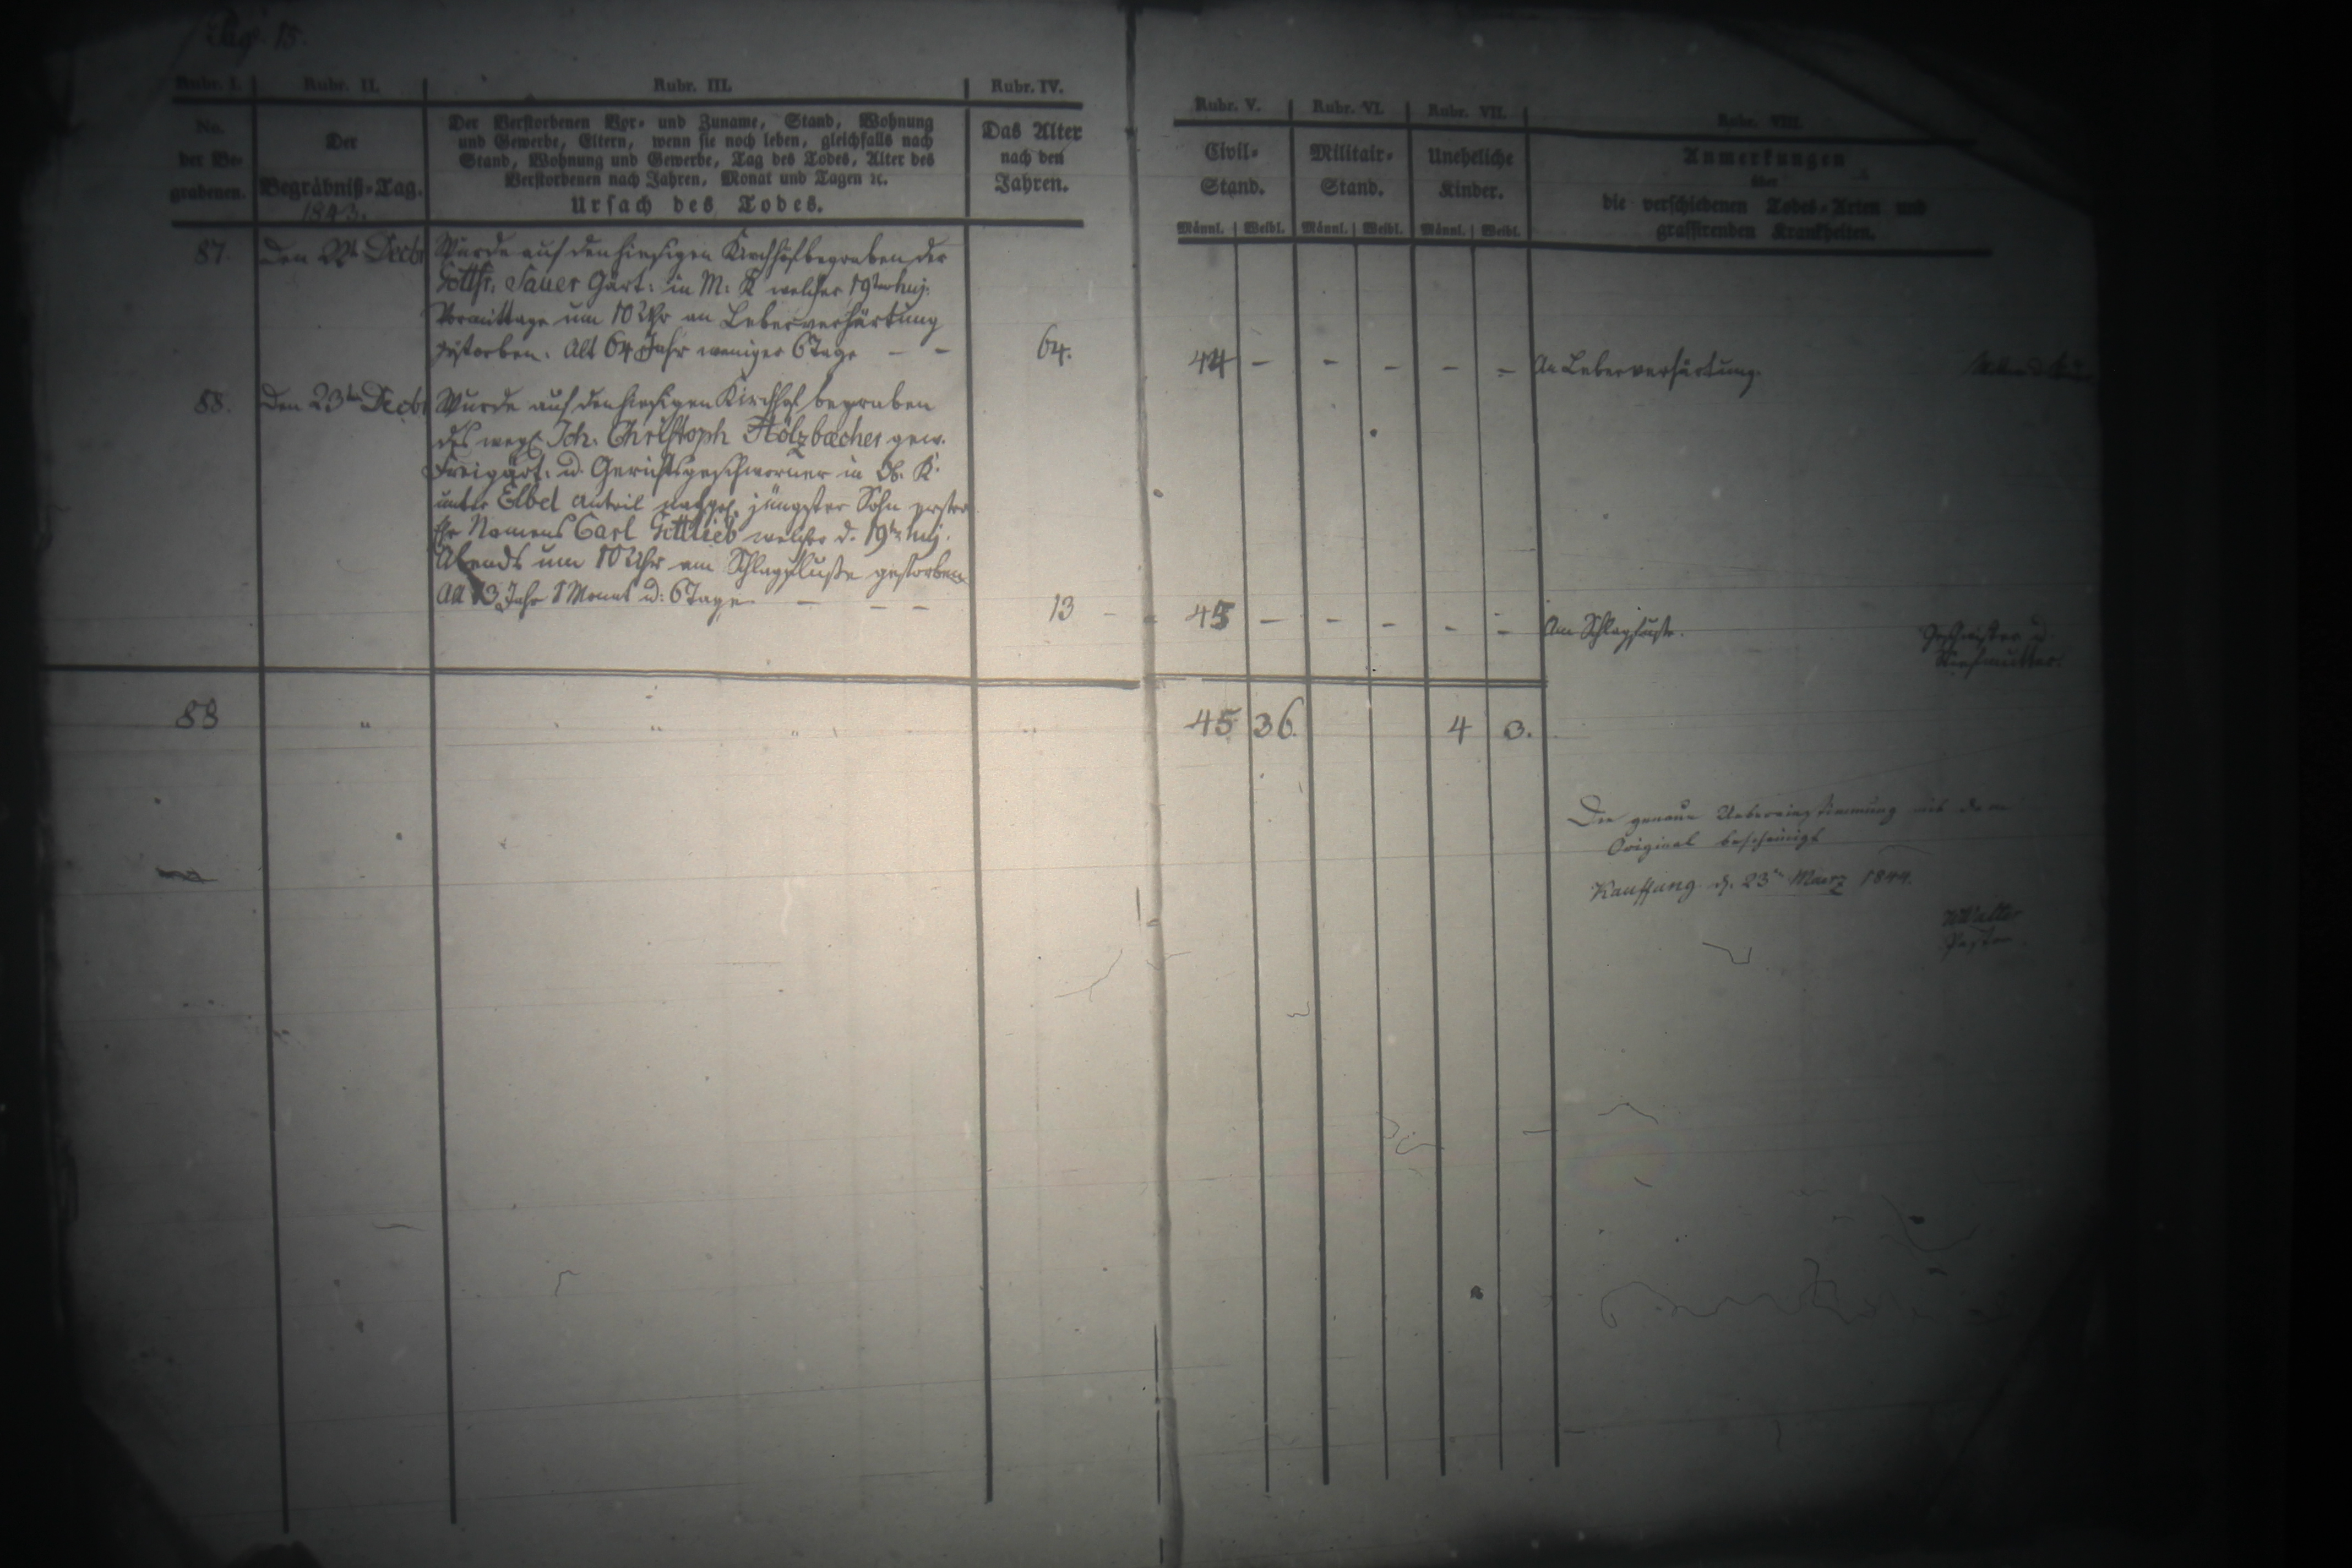 Pag. 15.
Rubr. I.
Rubr. II.
Rubr. III.
Rubr. IV.
Rubr. V.
Rubr. VI.
Rubr. VII.
Rubr. VIII.
No.
der Be-
grabenen.
Der
Begräbniß-Tag.
1843.
Der Verstorbenen Vor- und Zuname, Stand, Wohnung
und Gewerbe, Eltern, wenn sie noch leben, gleichfalls nach
Stand, Wohnung und Gewerbe, Tag des Todes, Alter des
Verstorbenen nach Jahren, Monat und Tagen ꝛc.
Ursach des Todes.
Das Alter
nach den
Jahren.
Civil-
Stand.
Männl. Weibl.
Militair-
Stand.
Männl. Weibl.
Uneheliche
Kinder.
Männl. Weibl.
Anmerkungen
über
die verschiedenen Todes-Arten und
grassirenden Krankheiten.
87. Den 22t Decbr Wurde auf den hiesigen Kirchhof begraben der
Gottfr. Sauer Gärt: in M: K welcher 19ten huj.
Vormittags um 10 Uhr an Leberverhärtung
gestorben. Alt 64 Jahr weniger 6 Tage – – 64. 44 – – – – – An Leberverhärtung.
88. Den 23ten Decbr Wurde auf den hiesigen Kirchhof begraben
des weyl. Joh. Christoph Hölzbecher gew.
Freigärt: u. Gerichtsgeschworner in Ob. K.
unter Elbel Anteil nachgel. jüngster Sohn erster
Ehe Namens Carl Gottlieb welcher d. 19ten huj.
Abends um 10 Uhr am Schlagfluße gestorben
Alt 13 Jahr 1 Monat u: 6 Tage – – – 13 – 45 – – – – – Am Schlagfluße. Geschwister u.
Stiefmutter.
88 " " " 45 36. 4 3.
Die genaue Uebereinstimmung mit dem
Original bescheinigt
Kauffung d. 23ten Maerz 1844.
Walter
Pastor